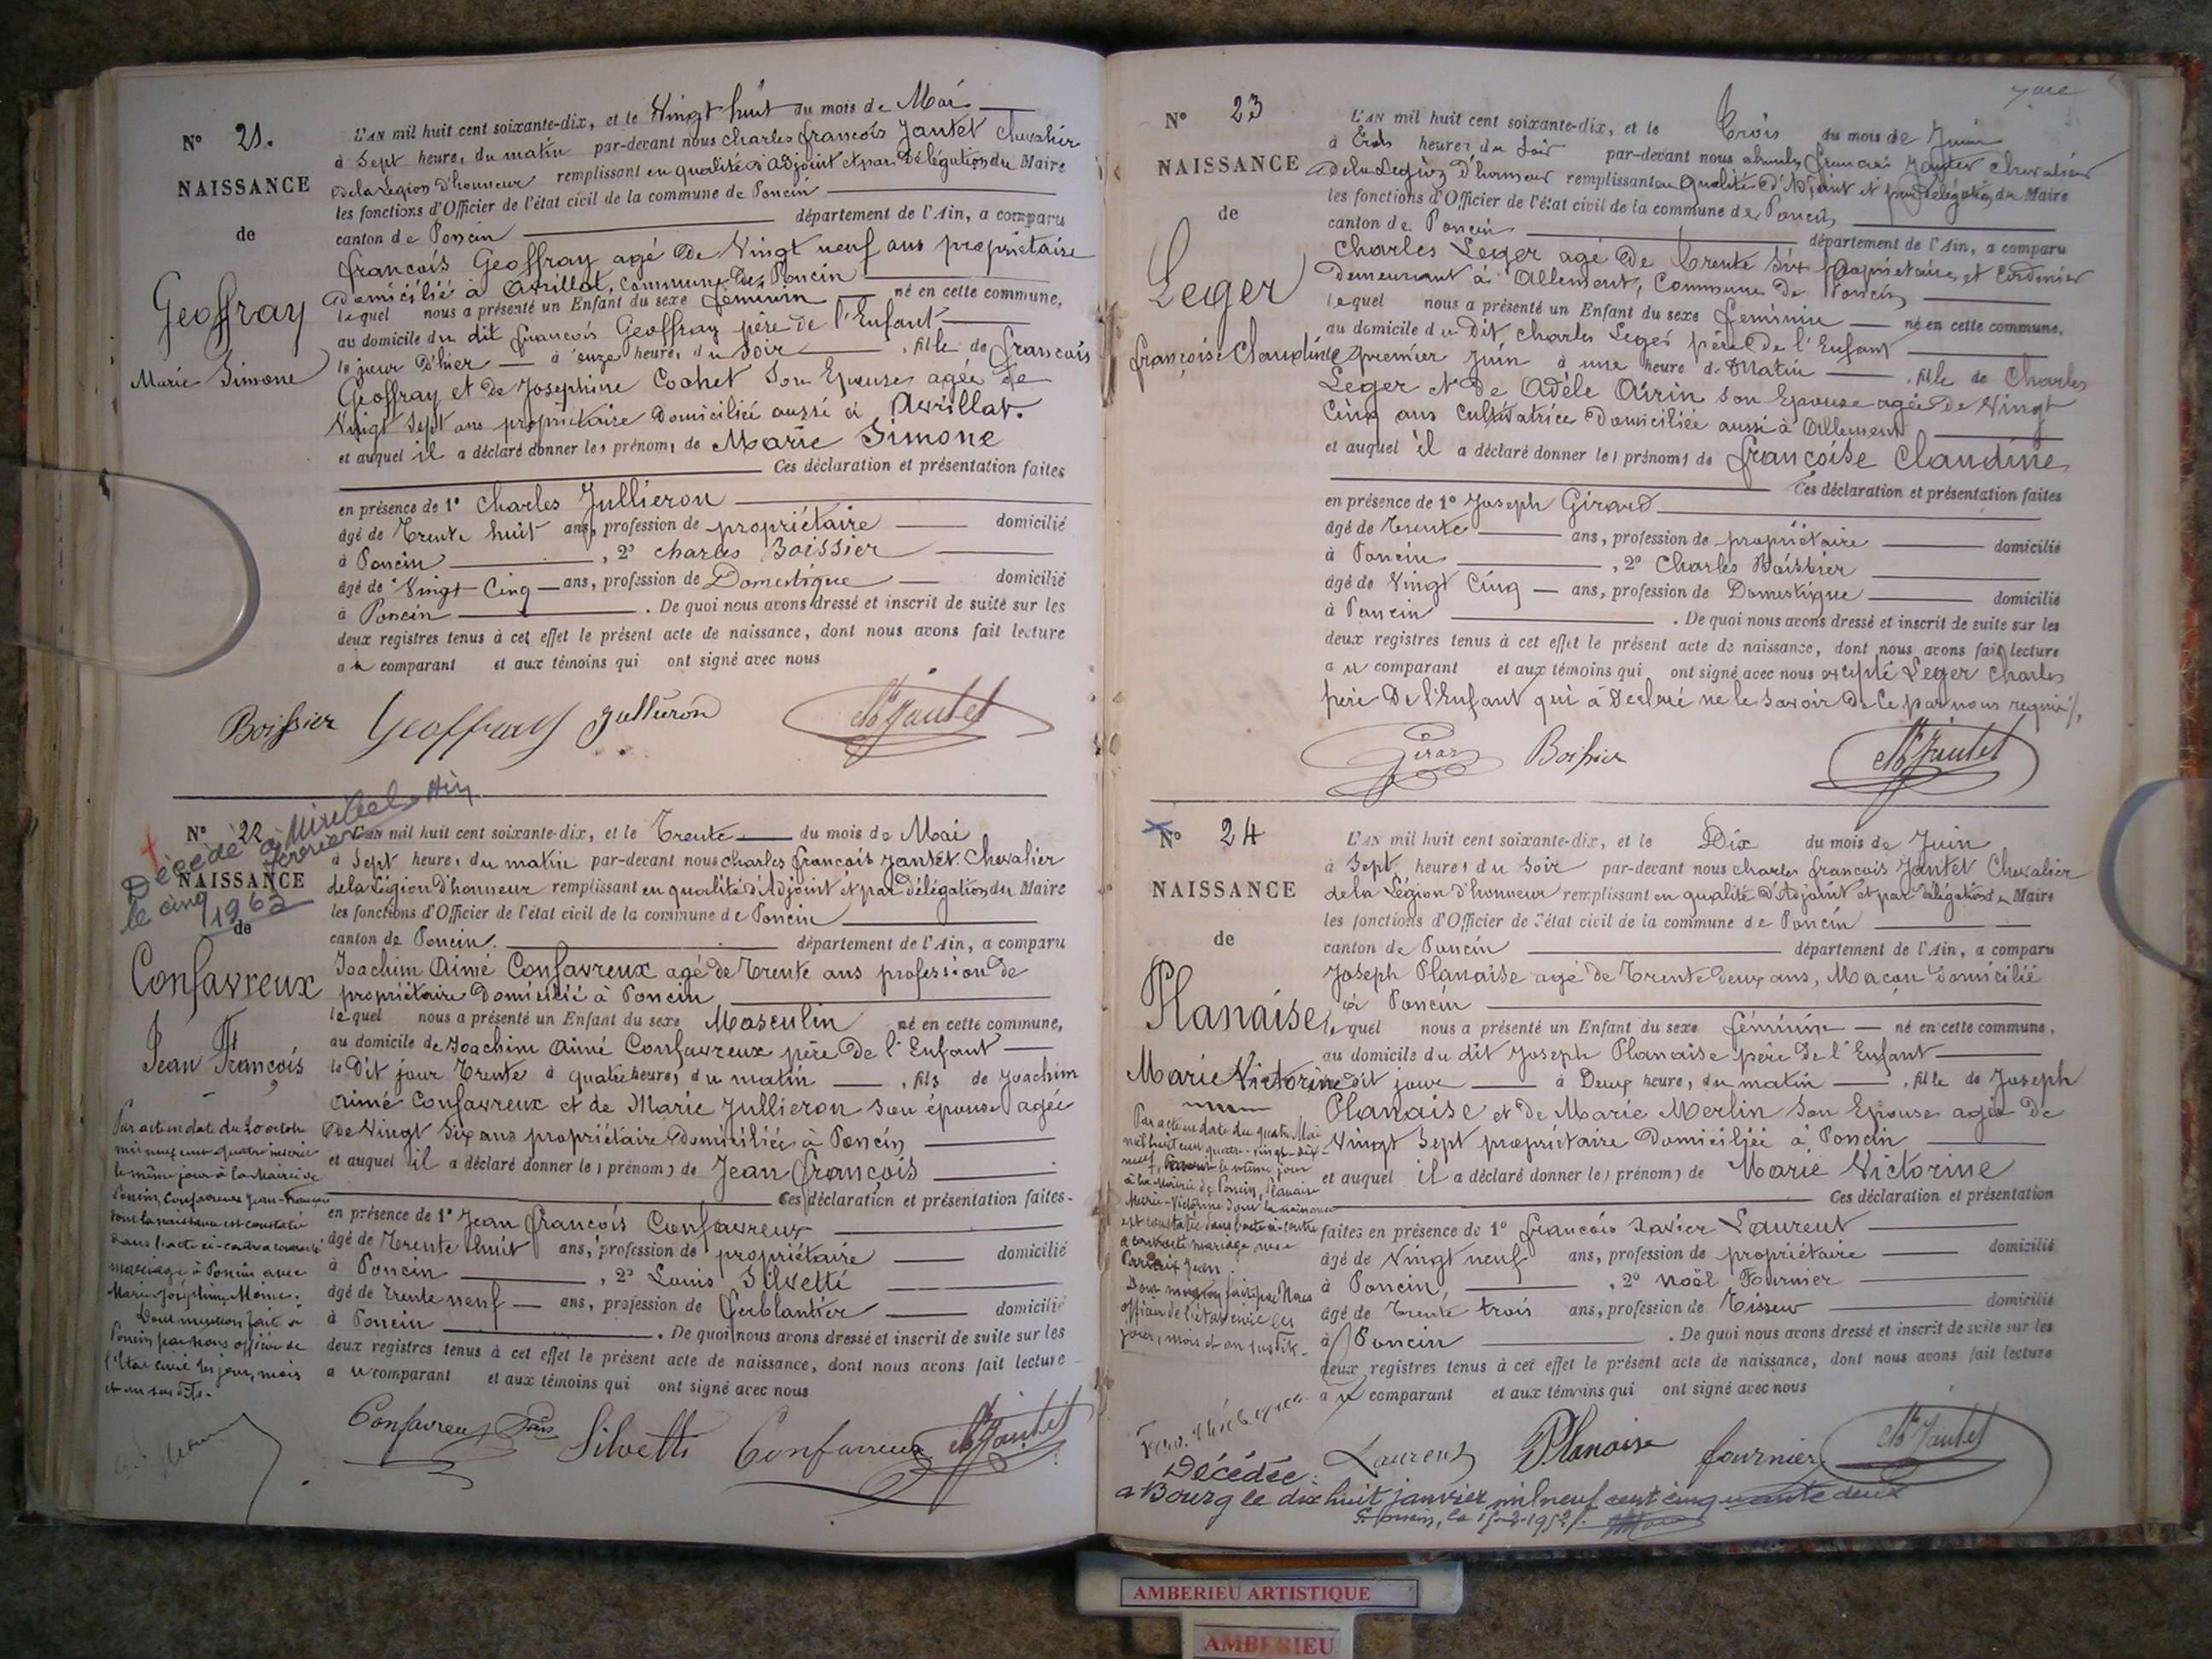 N° 21.
NAISSANCE
de
Geoffray
Marie Simone
L'AN mil huit cent soixante-dix, et le Vingt huit du mois de Mai
à Sept heures du matin par-devant nous Charles françois Jantet Chevalier
de la Légion d'honneur remplissant en qualité d'Adjoint et par Délégation du Maire
les fonctions d'Officier de l'état civil de la commune de Poncin
canton de Poncin département de l'Ain, a comparu
françois Geoffray agé de Vingt neuf ans propriétaire
domicilié à Avrillat, commune de Poncin
lequel nous a présenté un Enfant du sexe féminin né en cette commune,
au domicile du dit françois Geoffray père de l'Enfant
le jour d'hier à onze heures du Soir , fille de françois
Geoffray et de Josephine Cochet Son Epouse agée de
Vingt Sept ans propriétaire domiciliée aussi à Avrillat.
et auquel il a déclaré donner les prénoms de Marie Simone
Ces déclaration et présentation faites
en présence de 1° Charles Jullieron
âgé de Trente huit ans, profession de propriétaire domicilié
à Poncin , 2° Charles Boissier
âgé de Vingt Cinq ans, profession de Domestique domicilié
à Poncin . De quoi nous avons dressé et inscrit de suite sur les
deux registres tenus à cet effet le présent acte de naissance, dont nous avons fait lecture
au comparant et aux témoins qui ont signé avec nous
Boissier Geoffray Jullieron Ch Jantet
N° 22
NAISSANCE
de
Décédé à Miribel Ain
le cinq février
1962
Confavreux
Jean François
L'AN mil huit cent soixante-dix, et le Trente du mois de Mai
à Sept heures du matin par-devant nous Charles françois Jantet Chevalier
de la Légion d'honneur remplissant en qualité d'Adjoint et par Délégation du Maire
les fonctions d'Officier de l'état civil de la commune de Poncin
canton de Poncin. département de l'Ain, a comparu
Joachim Aimé Confavreux agé de Trente ans profession de
propriétaire Domicilié à Poncin
lequel nous a présenté un Enfant du sexe Masculin né en cette commune,
au domicile de Joachim Aimé Confavreux père de l'Enfant
le Dit jour Trente à quatre heures du matin , fils de Joachim
Aimé Confavreux et de Marie Jullieron Son épouse agée
de Vingt Six ans propriétaire Domiciliée à Poncin
et auquel il a déclaré donner les prénoms de Jean françois
Ces déclaration et présentation faites
en présence de 1° Jean françois Confavreux
âgé de Trente huit ans, profession de propriétaire domicilié
à Poncin , 2° Louis Silvetti
âgé de Trente neuf ans, profession de ferblantier domicilié
à Poncin . De quoi nous avons dressé et inscrit de suite sur les
deux registres tenus à cet effet le présent acte de naissance, dont nous avons fait lecture
au comparant et aux témoins qui ont signé avec nous
Par acte en date du 20 octobre
mil neuf cent quatre inscrit
le même jour à la Mairie de
Poncin, Confavreux Jean-François
dont la naissance est constatée
dans l'acte ci-contre a contracté
mariage à Poncin avec
Marie Joséphine Moine.
Dont mention faite à
Poncin par nous officier de
l'Etat civil les jour, mois
et an susdits.
Confavreux Silvetti Confavreux Ch Jantet
N° 23
NAISSANCE
de
Leger
françoise Claudine
L'AN mil huit cent soixante-dix, et le Trois du mois de Juin
à Trois heures du Soir par-devant nous charles françois Jantet chevalier
de la Légion d'honneur remplissant en qualité d'Adjoint et par Délégation du Maire
les fonctions d'Officier de l'état civil de la commune de Poncin
canton de Poncin département de l'Ain, a comparu
Charles Leger agé de Trente Six Propriétaire et Cordonier
Demeurant à Allement, Commune de Poncin
lequel nous a présenté un Enfant du sexe féminin né en cette commune,
au domicile du Dit Charles Leger père de l'Enfant
le premier Juin à une heure du Matin , fille de Charles
Leger et de Adèle Avrin son Epouse agée de Vingt
Cinq ans Cultivatrice Domiciliée aussi à Allement
et auquel il a déclaré donner les prénoms de françoise Claudine
Ces déclaration et présentation faites
en présence de 1° Joseph Girard
âgé de Trente ans, profession de propriétaire domicilié
à Poncin , 2° Charles Boissier
âgé de Vingt Cinq ans, profession de Domestique domicilié
à Poncin . De quoi nous avons dressé et inscrit de suite sur les
deux registres tenus à cet effet le présent acte de naissance, dont nous avons fait lecture
au comparant et aux témoins qui ont signé avec nous excepté Leger Charles
père De l'Enfant qui à Declaré ne le Savoir de ce par nous requis
Girard Boissier Ch Jantet
N° 24
NAISSANCE
de
Planaise
Marie Victorine
L'AN mil huit cent soixante-dix, et le Dix du mois de Juin
à Sept heures du Soir par-devant nous charles françois Jantet Chevalier
de la Légion d'honneur remplissant en qualité d'Adjoint et par Délégation du Maire
les fonctions d'Officier de l'état civil de la commune de Poncin
canton de Poncin département de l'Ain, a comparu
Joseph Planaise agé de Trente Deux ans, Maçon Domicilié
à Poncin
lequel nous a présenté un Enfant du sexe féminin né en cette commune,
au domicile du dit Joseph Planaise père de l'Enfant
dit jour à Deux heures du matin , fille de Joseph
Planaise et de Marie Merlin Son Epouse agée De
Vingt Sept propriétaire Domiciliée à Poncin
et auquel il a déclaré donner les prénoms de Marie Victorine
Ces déclaration et présentation
faites en présence de 1° françois Xavier Laurent
âgé de Vingt neuf ans, profession de propriétaire domicilié
à Poncin, , 2° Noël Fournier
âgé de Trente trois ans, profession de Tisseur domicilié
à Poncin . De quoi nous avons dressé et inscrit de suite sur les
deux registres tenus à cet effet le présent acte de naissance, dont nous avons fait lecture
au comparant et aux témoins qui ont signé avec nous
Par acte en date du quatre Mai
mil huit cent quatre-vingt-dix-
neuf, inscrit le même jour
à la Mairie de Poncin, Planaise
Marie-Victorine dont la naissance
est constatée dans l'acte ci-contre
a contracté mariage avec
Jean.
Dont mention faite par Nous
officier de l'état civil les
jour, mois et an susdits.
Laurent Planaise fournier Ch Jantet
Décédée
a Bourg le dix huit janvier mil neuf cent cinquante deux
AMBERIEU ARTISTIQUE
AMBERIEU